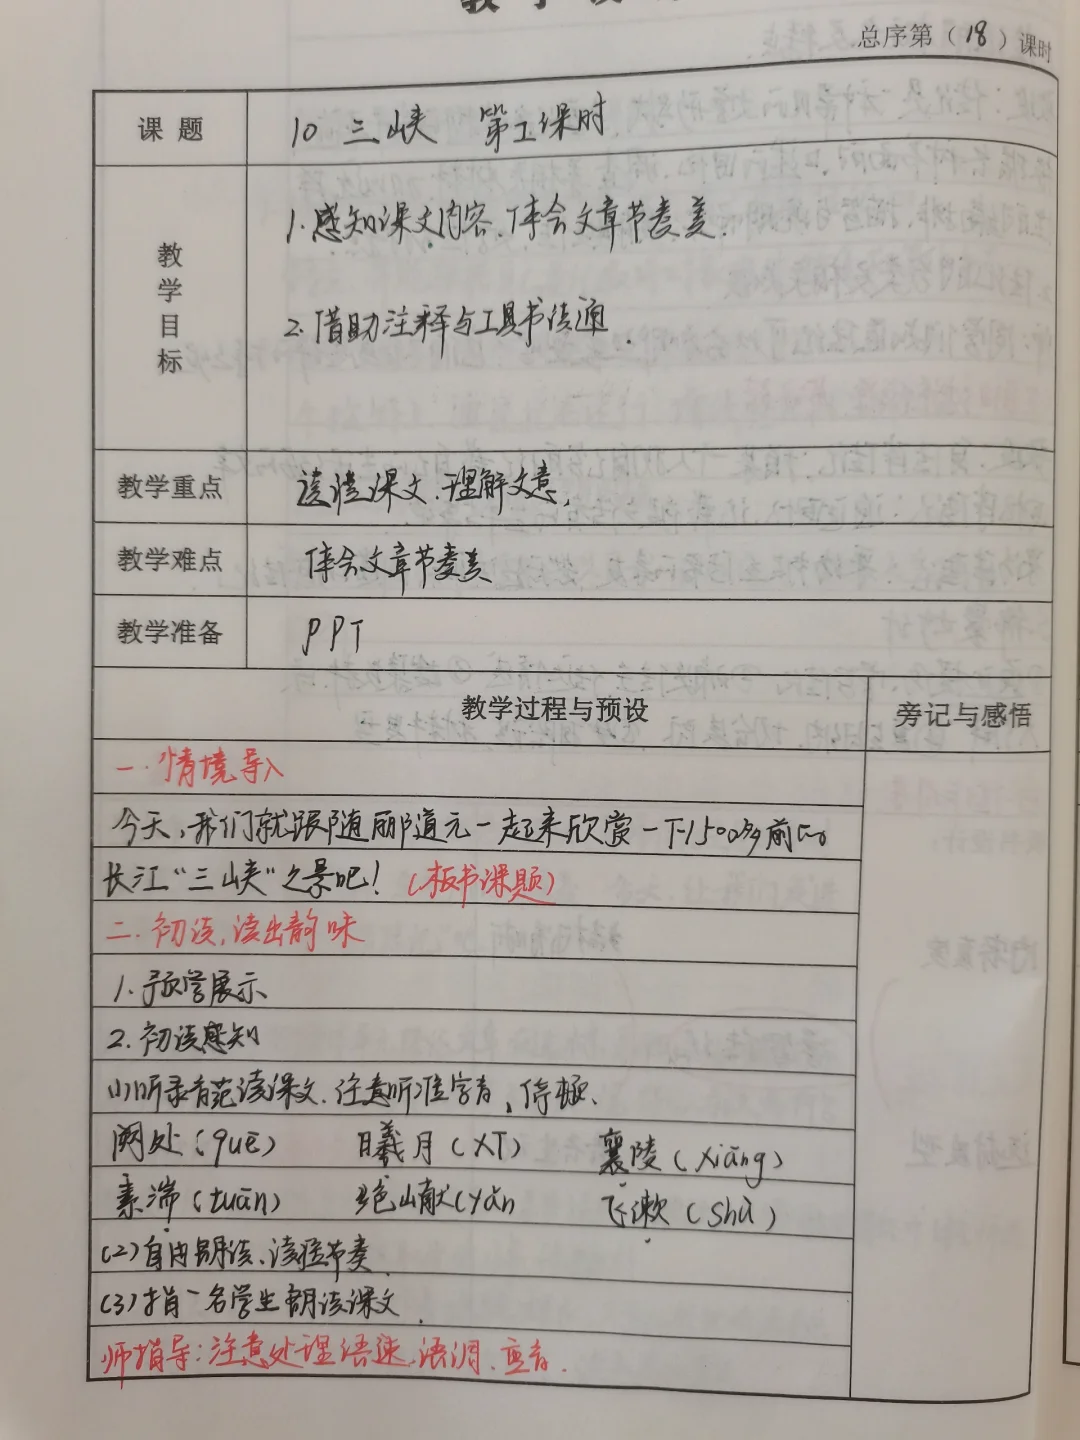 总序第（18）课时
课 题
10 三峡 第1课时
教学目标
1.感知课文内容、体会文章节奏美.
2.借助注释与工具书读通.
教学重点
读读课文、理解文意,
教学难点
体会文章节奏美
教学准备
PPT
教学过程与预设
旁记与感悟
一.情境导入
今天,我们就跟随郦道元一起来欣赏一下1500多前的
长江“三峡”之景吧!(板书课题)
二.初读,读出韵味
1.预学展示
2.初读感知
(1)听录音范读课文、注意听准字音,停顿、
阙处(quē) 曦月(xī) 襄陵(xiāng)
素湍(tuān) 绝巘(yǎn 飞漱(shù)
(2)自由朗读、读准节奏
(3)指一名学生朗读课文.
师指导:注意处理语速、语调、重音.